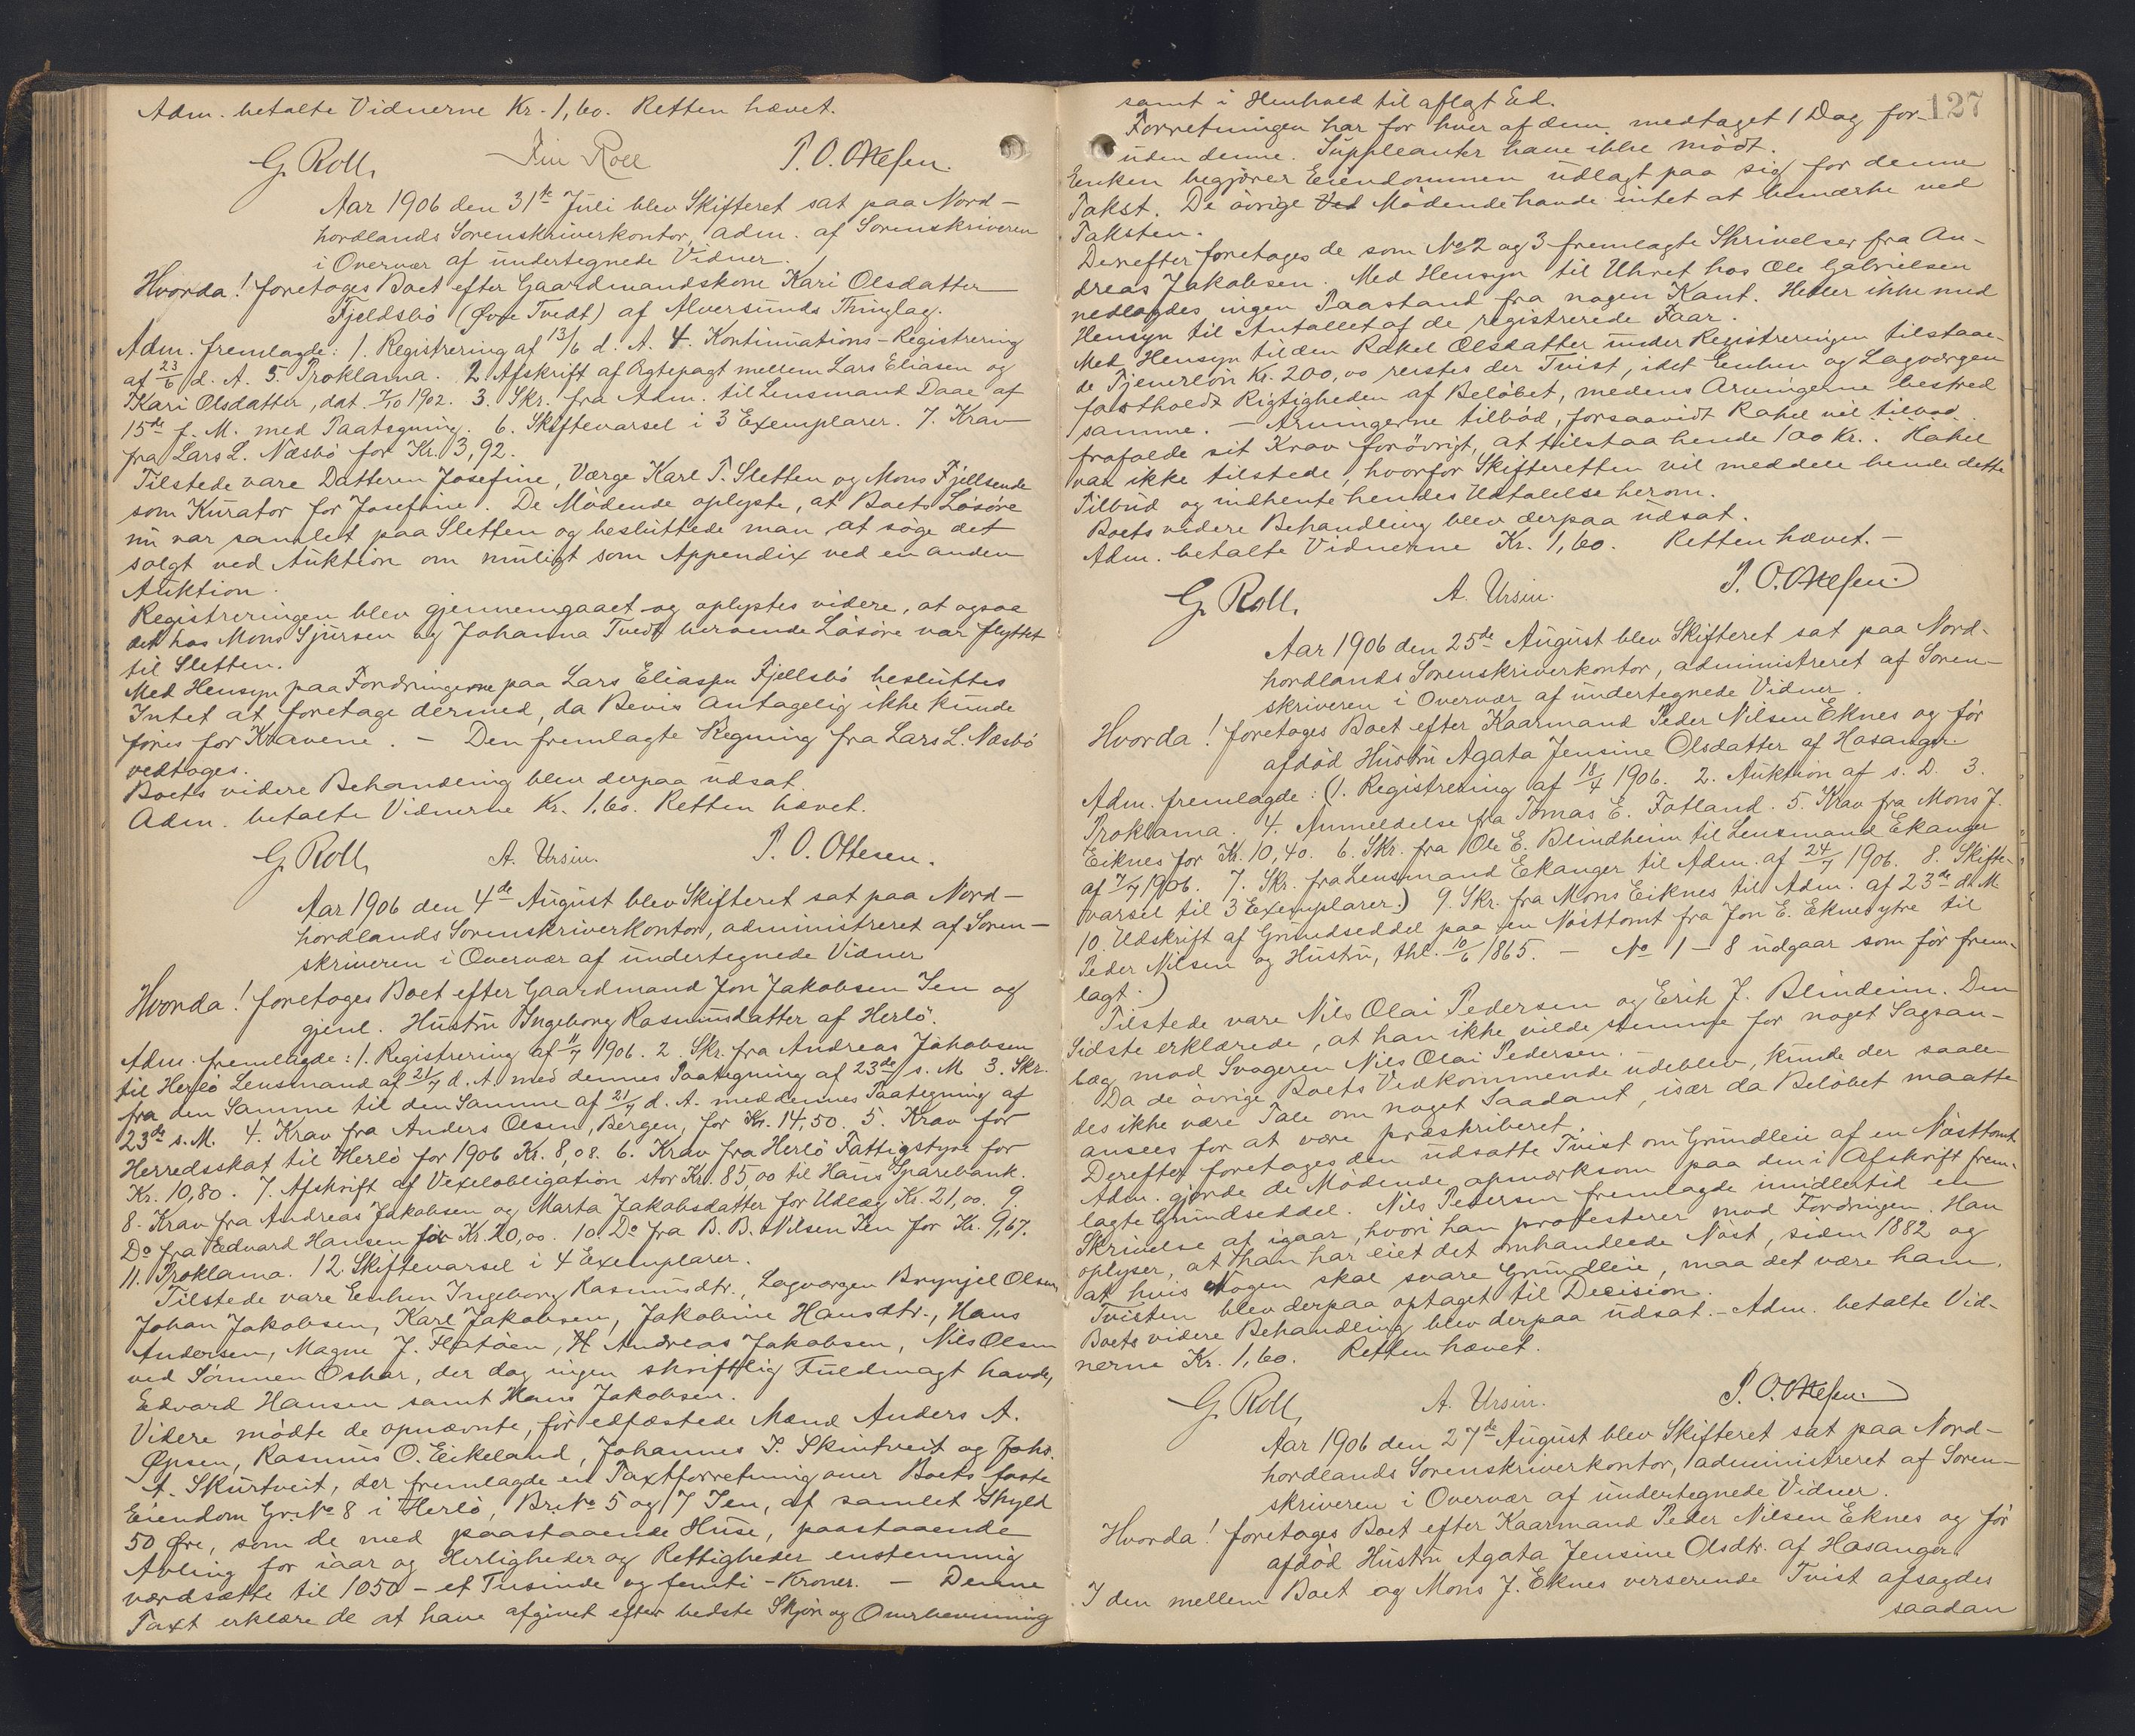 Adm. betalte Vidnerne Kr. 1,60. Retten hævet.
G. Roll, Finn Roll P. O. Ottesen.
Aar 1906 den 31te Juli blev Skifteret sat paa Nord-
hordlands Sorenskriverkontor, adm. af Sorenskriveren
i Overvær af undertegnede Vidner.
Hvorda! foretoges Boet efter Gaardmandskone Kari Olsdatter
Fjeldsbö (Øvre Tvedt) af Alversunds Thinglag.
Adm. fremlagde: 1. Registrering af 13/6 d. A. 4. Kontinuations-Registrering
af 23/6 d. A. 5. Proklama. 2. Afskrift af Ægtepagt mellem Lars Eliasen og
Kari Olsdatter, dat. 7/10 1902. 3. Skr. fra Adm. til Lensmand Daae af
15de f. M. med Paategning. 6. Skiftevarsel i 3 Exemplarer. 7. Krav
fra Lars L. Næsbö for Kr. 3,92.
Tilstede vare Datteren Josefine, Værge Karl P. Sletten og Mons Fjellsende
som Kurator for Josefine. De Mödende oplyste, at Boets Lösöre
nu var samlet paa Sletten og besluttede man at söge det
solgt ved Auktion om muligt som Appendix ved en anden
Auktion.
Registreringen blev gjennemgaaet og oplystes videre, at ogsaa
det hos Mons Sjursen og Johanna Tvedt beroende Lösöre var flyttet
til Sletten.
Med Hensyn paa Fordringerne paa Lars Eliasen Fjellsbö besluttes
Intet at foretage dermed, da Bevis antagelig ikke kunde
föres for Kravene. - Den fremlagte Regning fra Lars L. Næsbö
vedtoges.
Boets videre Behandling blev derpaa udsat.
Adm. betalte Vidnerne Kr. 1,60. Retten hævet.
G. Roll, A. Ursin. P. O. Ottesen.
Aar 1906 den 4de August blev Skifteret sat paa Nord-
hordlands Sorenskriverkontor, administreret af Soren-
skriveren i Overvær af undertegnede Vidner
Hvorda! foretoges Boet efter Gaardmand Jon Jakobsen Ien og
gjenl. Hustru Ingeborg Rasmusdatter af Herlö.
Adm. fremlagde: 1. Registrering af 11/7 1906. 2. Skr. fra Andreas Jakobsen
til Herlö Lensmand af 21/7 d. A. med dennes Paategning af 23de s. M. 3. Skr.
fra den Samme til den Samme af 21/7 d. A. med dennes Paategning af
23de s. M. 4. Krav fra Anders Olsen, Bergen, for Kr. 14,50. 5. Krav for
Herredsskat til Herlö for 1906 Kr. 8,08. 6. Krav fra Herlö Fattigstyre for
Kr. 10,80. 7. Afskrift af Vexelobligation stor Kr. 85,00 til Haus Sparebank.
8. Krav fra Andreas Jakobsen og Marta Jakobsdatter for Udlæg Kr. 21,00. 9.
Do fra Edvard Hansen for Kr. 20,00. 10. Do fra B. B. Nilsen Ien for Kr. 9,67.
11. Proklama. 12. Skiftevarsel i 4 Exemplarer.
Tilstede vare Enken Ingeborg Rasmusdtr., Lagværgen Brynjel Olsen,
Johan Jakobsen, Karl Jakobsen, Jakobine Hansdtr., Hans
Andersen, Magne J. Flatöen, H Andreas Jakobsen, Nils Olsen
ved Sönnen Oskar, der dog ingen skriftlig Fuldmagt havde,
Edvard Hansen samt Hans Jakobsen.
Videre mödte de opnævnte, för edfæstede Mænd Anders A.
Øpsen, Rasmus O. Eikeland, Johannes P. Skurtveit og Johs.
A. Skurtveit, der fremlagde en Taxtforretning over Boets faste
Eiendom Gr. No 8 i Herlö, Br. No 5 og 7 Ien, af samlet Skyld
50 Øre, som de med paastaaende Huse, paastaaende
Avling for iaar og Herligheder og Rettigheder enstemmig
værdsætte til 1050 - et Tusinde og femti - Kroner. - Denne
Taxt erklære de at have afgivet efter bedste Skjön og Overbevisning
127
samt i Henhold til aflagt Ed.
Forretningen har for hver af dem medtaget 1 Dag for-
uden denne. Suppleanter have ikke mödt.
Enken begjærer Eiendommen udlagt paa sig for denne
Takst. De övrige Ved Mödende havde intet at bemærke ved
Taksten.
Derefter foretoges de som No 2 og 3 fremlagte Skrivelser fra An-
dreas Jakobsen. Med Hensyn til Uhret hos Ole Gabrielsen
nedlagdes ingen Paastand fra nogen Kant. Heller ikke med
Hensyn til Antallet af de registrerede Faar.
Med Hensyn til den Rakel Olsdatter under Registreringen tilstaae-
de Tjenerlön Kr. 200,00 reistes der Tvist, idet Enken og Lagværgen
fastholdt Rigtigheden af Belöbet, medens Arvingerne bestred
samme. - Arvingerne tilböd, forsaavidt Rakel vil
frafalde sit Krav forövrigt, at tilstaa hende 100 Kr. Rakel
var ikke tilstede, hvorfor Skifteretten vil meddele hende dette
Tilbud og indhente hendes Udtalelse herom.
Boets videre Behandling blev derpaa udsat.
Adm. betalte Vidnerne Kr. 1,60. Retten hævet. -
G. Roll, A. Ursin. P. O. Ottesen.
Aar 1906 den 25de August blev Skifteret sat paa Nord-
hordlands Sorenskriverkontor, administreret af Soren-
skriveren i Overvær af undertegnede Vidner.
Hvorda! foretoges Boet efter Kaarmand Peder Nilsen Eknes og för
afdöd Hustru Agata Jensine Olsdatter af Hosanger.
Adm. fremlagde: (1. Registrering af 18/4 1906. 2. Auktion af s. D. 3.
Proklama. 4. Anmeldelse fra Tomas E. Fotland. 5. Krav fra Mons J.
Eiknes for Kr. 10,40. 6. Skr. fra Ole E. Blindheim til Lensmand Ekanger
af 7/7 1906. 7. Skr. fra Lensmand Ekanger til Adm. af 24/7 1906. 8. Skifte-
varsel til 3 Exemplarer.) 9. Skr. fra Mons Eiknes til Adm. af 23de d. M.
10. Udskrift af Grundseddel paa en Nösttomt fra Jon E. Eknes ytre til
Peder Nilsen og Hustru, thl. 10/6 1865. - No 1-8 udgaar som för frem-
lagt.)
Tilstede vare Nils Olai Pedersen og Erik J. Blindeim. Den
Sidste erklærede, at han ikke vilde stemme for noget Sagsan-
læg mod Svogeren Nils Olai Pedersen. -
Da de övrige Boets Vedkommende udeblev, kunde der saale-
des ikke være Tale om noget Saadant, især da Belöbet maatte
ansees for at være præskriberet.
Derefter foretoges den udsatte Tvist om Grundleie af en Nösttomt.
Adm. gjorde de Mödende opmærksom paa den i Afskrift frem-
lagte Grundseddel. Nils Pedersen fremlagde imidlertid en
Skrivelse af igaar, hvori han protesterer mod Fordringen. Han
oplyser, at han har eiet det omhandlede Nöst, siden 1882 og
at hvis Nogen skal svare Grundleie, maa det være ham.
Tvisten blev derpaa optaget til Decision.
Boets videre Behandling blev derpaa udsat. - Adm. betalte Vid-
nerne Kr. 1,60. Retten hævet.
G. Roll, A. Ursin. P. O. Ottesen.
Aar 1906 den 27de August blev Skifteret sat paa Nord-
hordlands Sorenskriverkontor, administreret af Soren-
skriveren i Overvær af undertegnede Vidner.
Hvorda! foretoges Boet efter Kaarmand Peder Nilsen Eknes og för
afdöd Hustru Agata Jensine Olsdtr. af Hosanger.
I den mellem Boet og Mons J. Eknes verserende Tvist afsagdes
saadan